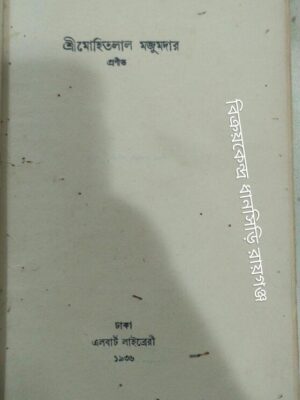 শ্রীমোহিতলাল মজুমদার
প্রণীত
বিক্রয়কেন্দ্র ধানসিড়ি রায়গঞ্জ
ঢাকা
এলবার্ট লাইব্রেরী
১৯৩৬